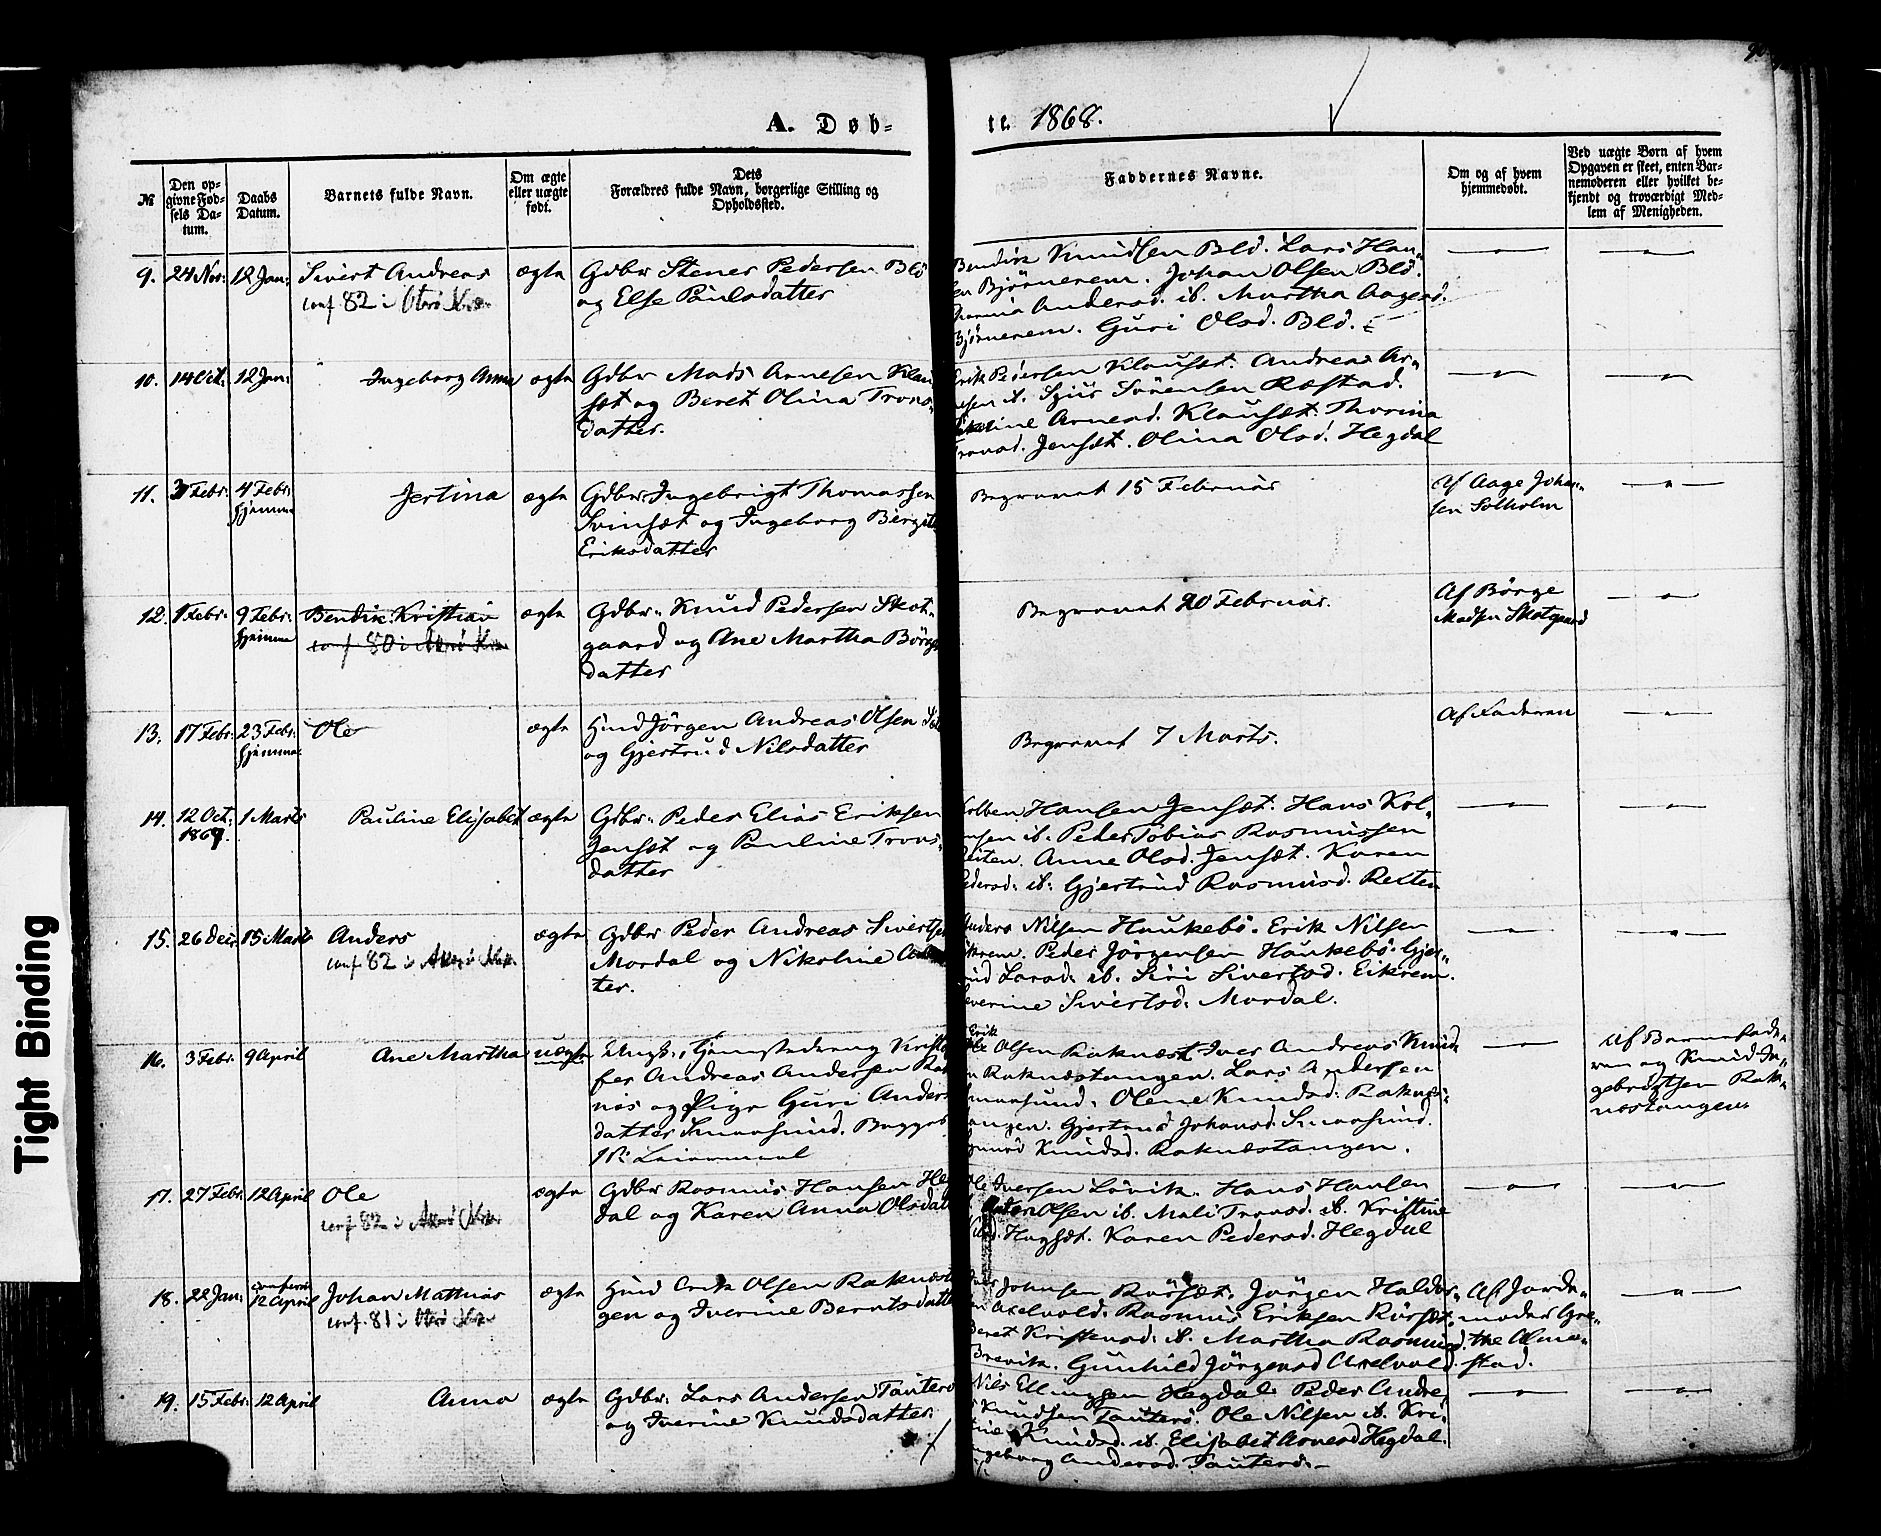 A. Døb-
te. 1868.
№
Den op-
givne Fød-
sels Da-
tum.
Daabs
Datum.
Barnets fulde Navn.
Om ægte
eller uægte
født.
Dets
Forældres fulde Navn, borgerlige Stilling og
Opholdssted.
Faddernes Navne.
Om og af hvem
hjemmedøbt.
Ved uægte Børn af hvem
Opgaven er skeet, enten Bar-
nemoderen eller hvilket be-
kjendt og troværdigt Med-
lem af Menigheden.
9. 24 Nov: 12 Jan: Sivert Andreas ægte
conf. 82 i
Gdbr Stener Pedersen Blø
og Else Paulsdatter
Bendik Knudsen Blø. Lars Han-
sen Bjørnerem. Johan Olsen Blø.
Andersd. ib. Martha Aagesd.
Bjørnerem. Guri Olsd. Blø.
10. 14 Oct: 12 Jan: Ingeborg Anna ægte
Gdbr Mads Arnesen Klau
sæt og Beret Olina Trons-
datter.
Erik Pedersen Klausæt. Andreas Ar-
nesen ib. Sjur Sørensen Ræstad.
Arnesd. Klausæt. Thorina
Tronsd. Jensæt. Olina Olsd. Hegdal
11. 3 Febr: 4 Febr: Jertina ægte
hjemme
Gdbr Ingebrigt Thomassen
Svinsæt og Ingeborg Bergit
Eriksdatter
Begravet 15 Februar
Af Aage Johan-
sen Solholm
12. 1 Febr: 9 Febr: Bendik Kristian ægte
hjemme
conf. 80 i
Gdbr. Knud Pedersen Skot-
gaard og Ane Martha Børge
datter
Begravet 20 Februar.
Af Børge
Madsen Skotgaard
13. 17 Febr: 23 Febr: Ole ægte
hjemme
Hmd Jørgen Andreas Olsen
og Gjertrud Nilsdatter
Begravet 7 Marts.
Af Faderen
14. 12 Oct: 1 Marts Pauline Elisabet ægte
1867.
Gdbr. Peder Elias Eriksen
Jensæt og Pauline Trons-
datter
Kolben Hansen Jensæt. Hans Kol-
ensen ib. Peder Tobias Rasmussen
Reiten. Anne Olsd. Jensæt. Karen
Pedersd: ib. Gjertrud Rasmusd. Reiten
15. 26 Decr 15 Marts Anders ægte
conf. 82 i
Gdbr Peder Andreas Sivertsen
Mordal og Nikoline
ter.
Anders Nilsen Haukebø. Erik Nilsen
Eikrem. Peder Jørgensen Haukebø. Gjer-
trud Larsd: ib. Siri Sivertsd. Eikrem.
Severine Sivertsd. Mordal.
16. 3 Febr: 9 April Ane Martha uægte
Ungk. Gaardmandsdreng Kristo
fer Andreas Andersen Rak
nes og Pige Guri Anders
datter Smaasund. Begges
1ste Leiermaal
Erik
Ole Olsen Raknæst. Iver Andreas Knud-
sen Raknæstangen. Lars Andersen
Smaasund. Olene Knudsd. Raknæs-
tangen. Gjertrud Johansd. Smaasund.
Knudsd. Raknæstangen.
Af Barnefade-
ren og Knud In-
gebrigtsen Rak-
næstangen
17. 27 Febr: 12 April Ole ægte
conf 82 i
Gdbr Rasmus Hansen Heg
dal og Karen Anna Olsdatt
Ole Iversen Løvik. Hans Hansen
Olsen ib. Mali Tronsd. ib. Kristine
Hagsæt. Karen Pedersd. Hegdal
18. 22 Jan: 12 April Johan Mathias ægte
conf. 81 i
Hmd Erik Olsen Raknæst
gen og Iverine Berntsdatter
Johnsen Rørsæt. Jørgen Haldor-
sen Axelvold. Rasmus Eriksen Rørsæt.
Beret Kristensd. ib. Martha Rasmusd.
Brevik. Gunhild Jørgensd Axelvold.
Af Jorde-
moder Gre-
the Alme-
stad.
19. 15 Febr: 12 April Anna ægte
Gdbr. Lars Andersen Tauterø
og Iverine Knudsdatter.
Nils Ellingsen Hegdal. Peder Andre-
as Knudsen Tauterø. Ole Nilsen ib. Kri-
stine Knudsd. ib. Elisabet Arnesd Hegdal.
Ingeborg Andersd. Tauterø.
Tight Binding